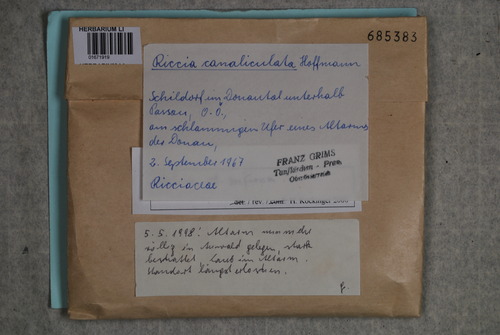 HERBARIUM LI
685383
Riccia canaliculata Hoffmann
Schildorf im Donautal unterhalb
Passau, O.Ö.,
am schlammigen Ufer eines Altarms
der Donau,
2. September 1967
Ricciaceae
FRANZ GRIMS
Taufkirchen - Pram
Oberösterreich
det. / rev. / H. Köckinger
5. 5. 1998: Altarm nunmehr
völlig im Auwald gelegen, stark
beschattet. Laub im Altarm.
Standort längst erloschen.